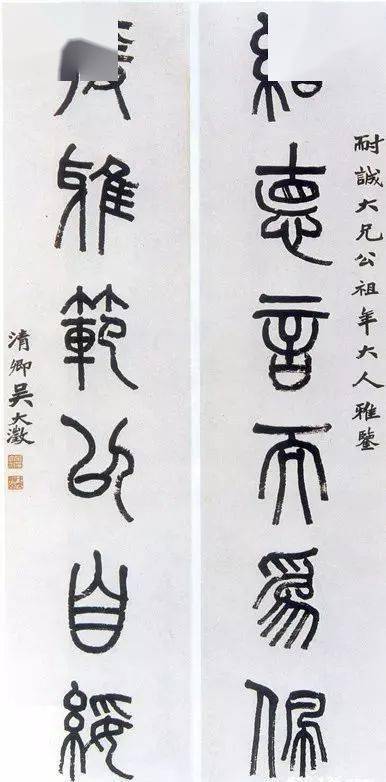 耐誠大兄公祖年大人雅鑒
悳言而爲佩
雅範以自綏
清卿吳大澂